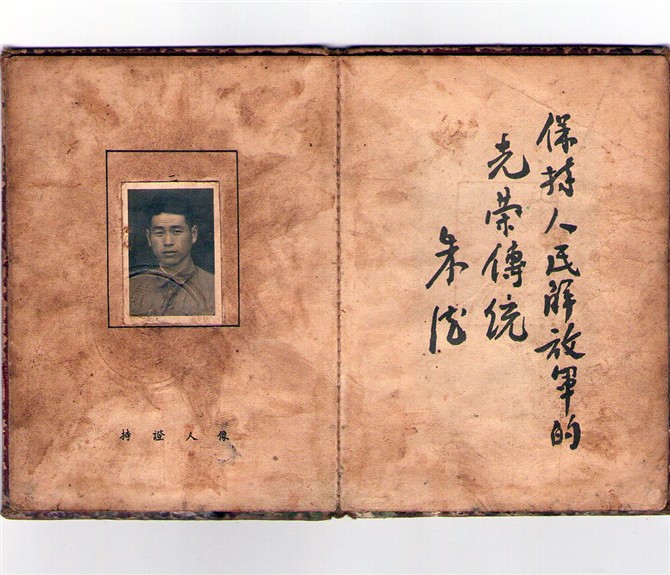 保持人民解放軍的
光榮傳統
朱德
持證人像